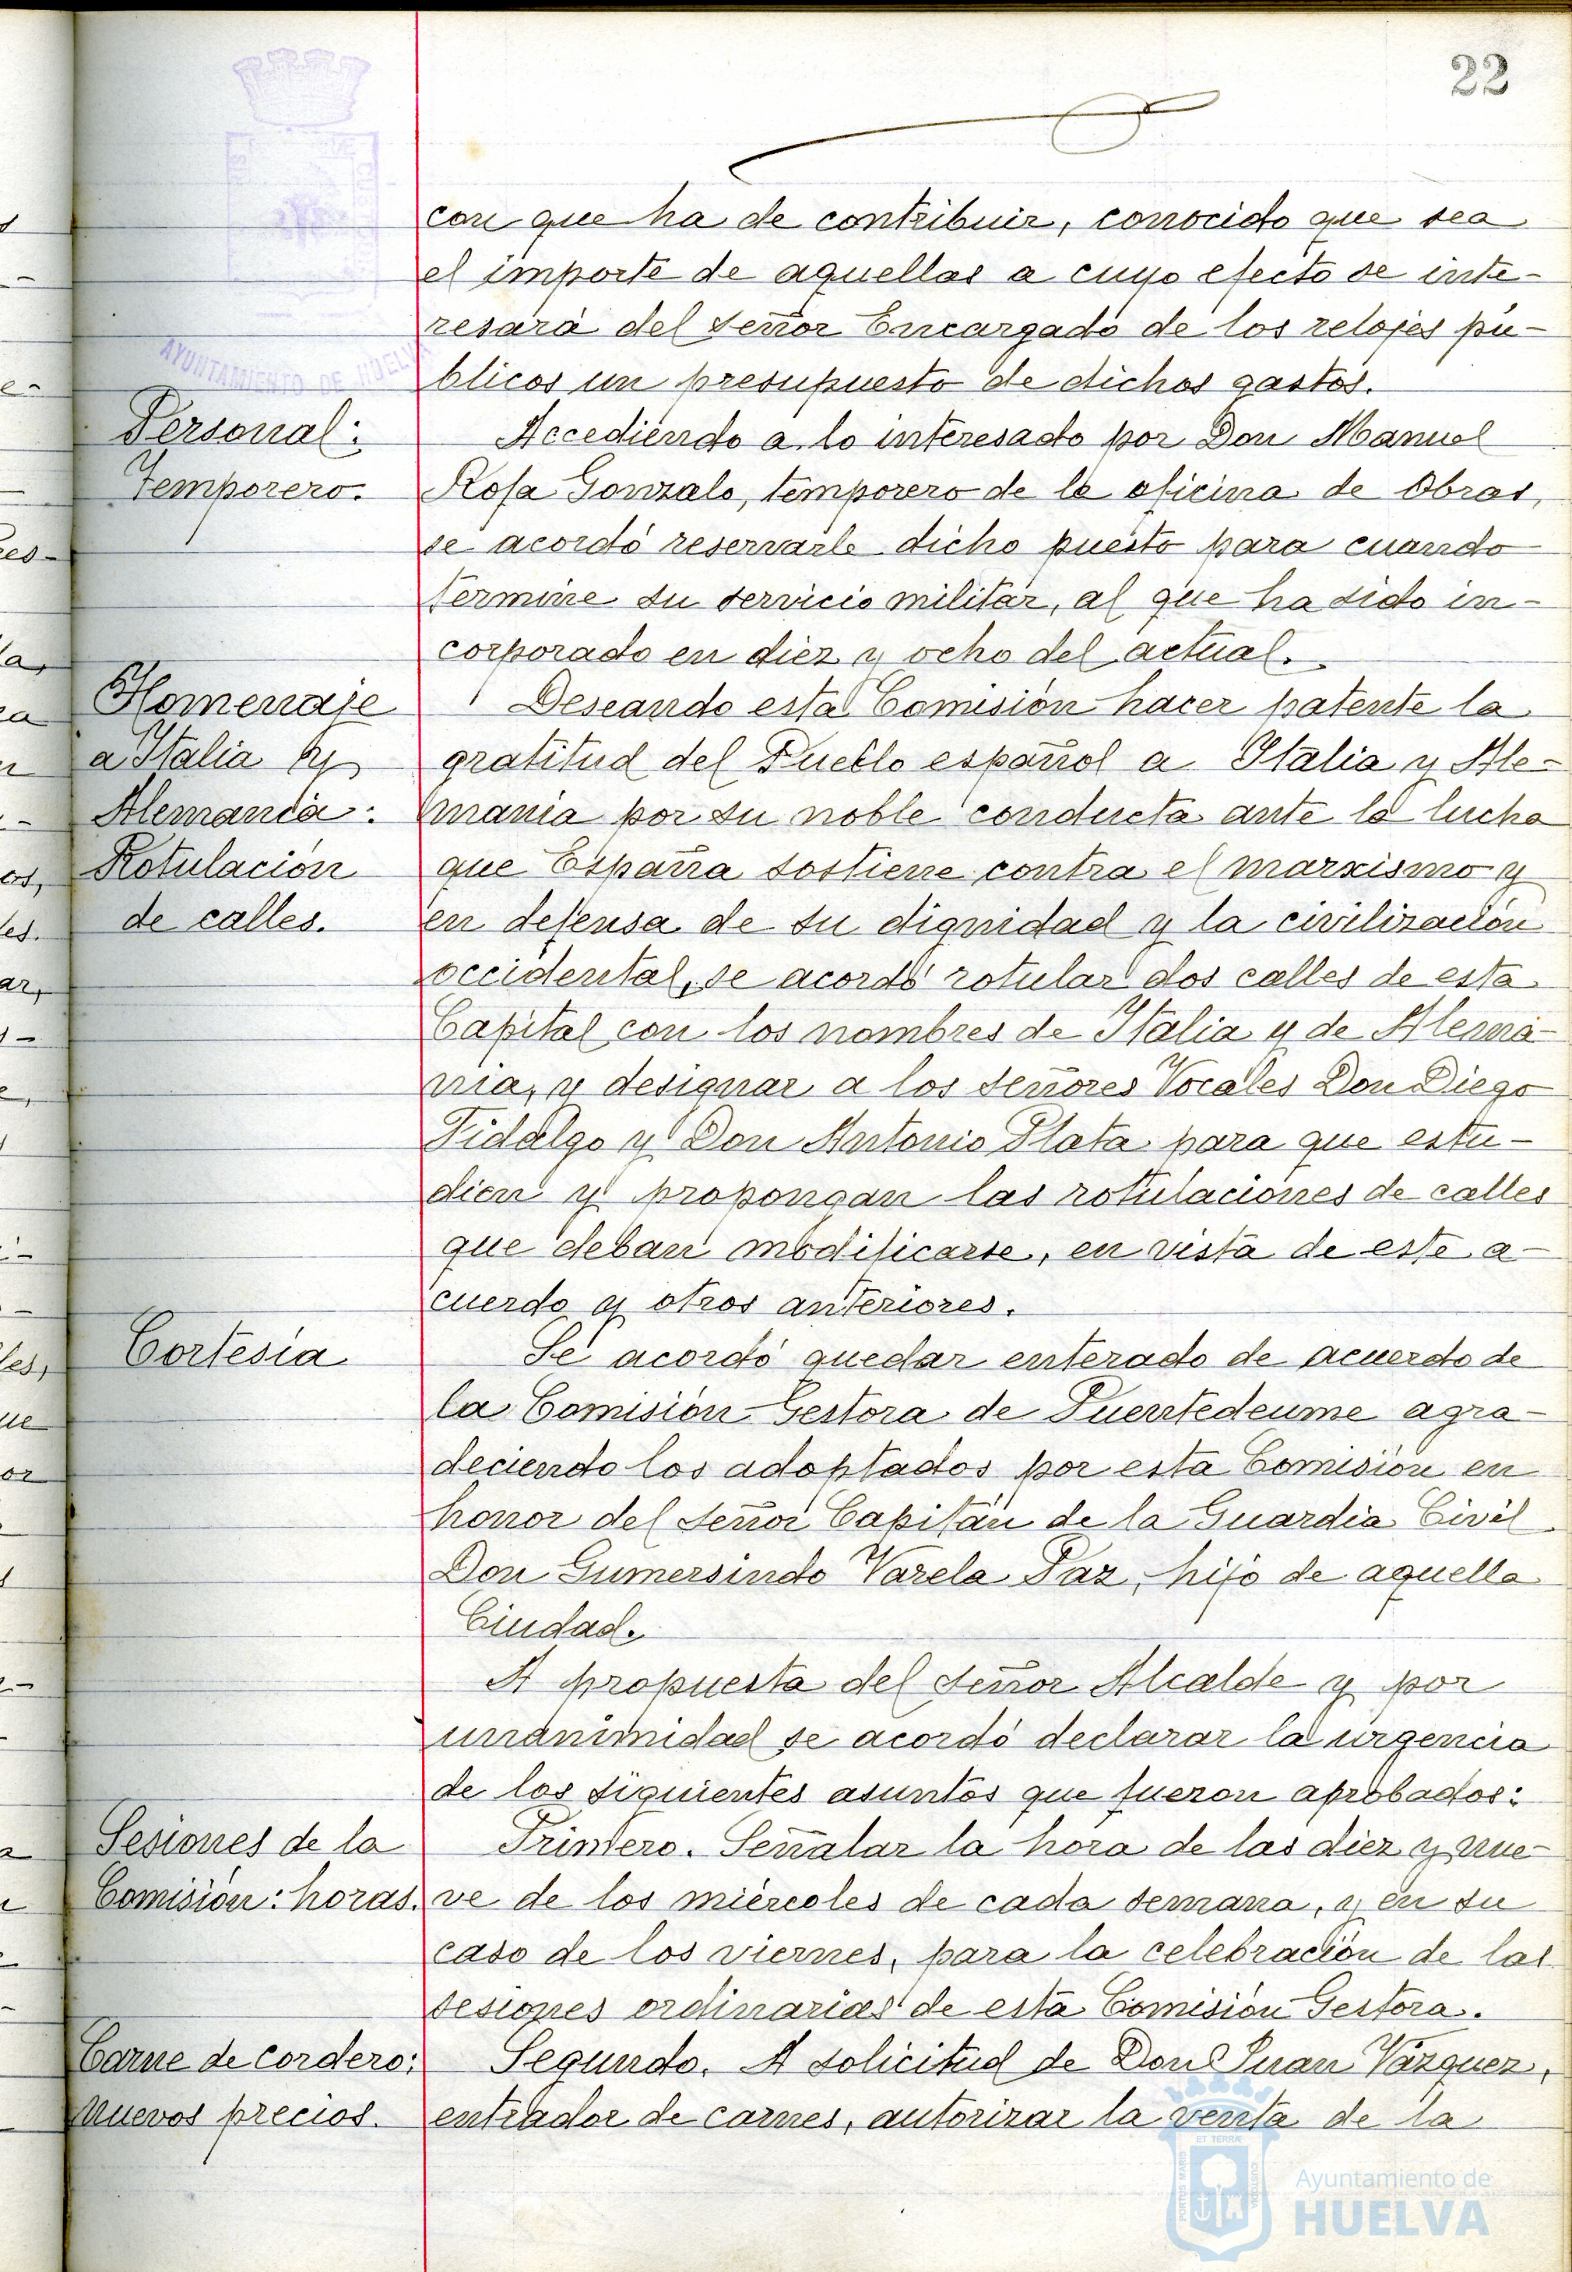 22
con que ha de contribuir, conocido que sea
el importe de aquellas a cuyo efecto se inte-
resará del señor Encargado de los relojes pú-
blicos un presupuesto de dichos gastos.
Personal:
Temporero.
Accediendo a lo interesado por Don Manuel
Rosa Gonzalo, temporero de la oficina de Obras,
se acordó reservarle dicho puesto para cuando
termine su servicio militar, al que ha sido in-
corporado en diez y ocho del actual.
Homenaje
a Italia y
Alemania:
Rotulación
de calles.
Deseando esta Comisión hacer patente la
gratitud del Pueblo español a Italia y Ale-
mania por su noble conducta ante la lucha
que España sostiene contra el marxismo y
en defensa de su dignidad y la civilización
occidental, se acordó rotular dos calles de esta
Capital con los nombres de Italia y de Alema-
nia, y designar a los señores Vocales Don Diego
Fidalgo y Don Antonio Plata para que estu-
dien y propongan las rotulaciones de calles
que deban modificarse, en vista de este a-
cuerdo y otros anteriores.
Cortesía
Se acordó quedar enterado de acuerdo de
la Comisión Gestora de Puentedeume agra-
deciendo los adoptados por esta Comisión en
honor del señor Capitán de la Guardia Civil
Don Gumersindo Varela Paz, hijo de aquella
Ciudad.
A propuesta del señor Alcalde y por
unanimidad se acordó declarar la urgencia
de los siguientes asuntos que fueron aprobados:
Sesiones de la
Comisión: horas.
Primero. Señalar la hora de las diez y nue-
ve de los miércoles de cada semana, y en su
caso de los viernes, para la celebración de las
sesiones ordinarias de esta Comisión Gestora.
Carne de cordero:
nuevos precios.
Segundo. A solicitud de Don Juan Vázquez,
entrador de carnes, autorizar la venta de la
AYUNTAMIENTO DE HUELVA
Ayuntamiento de
HUELVA